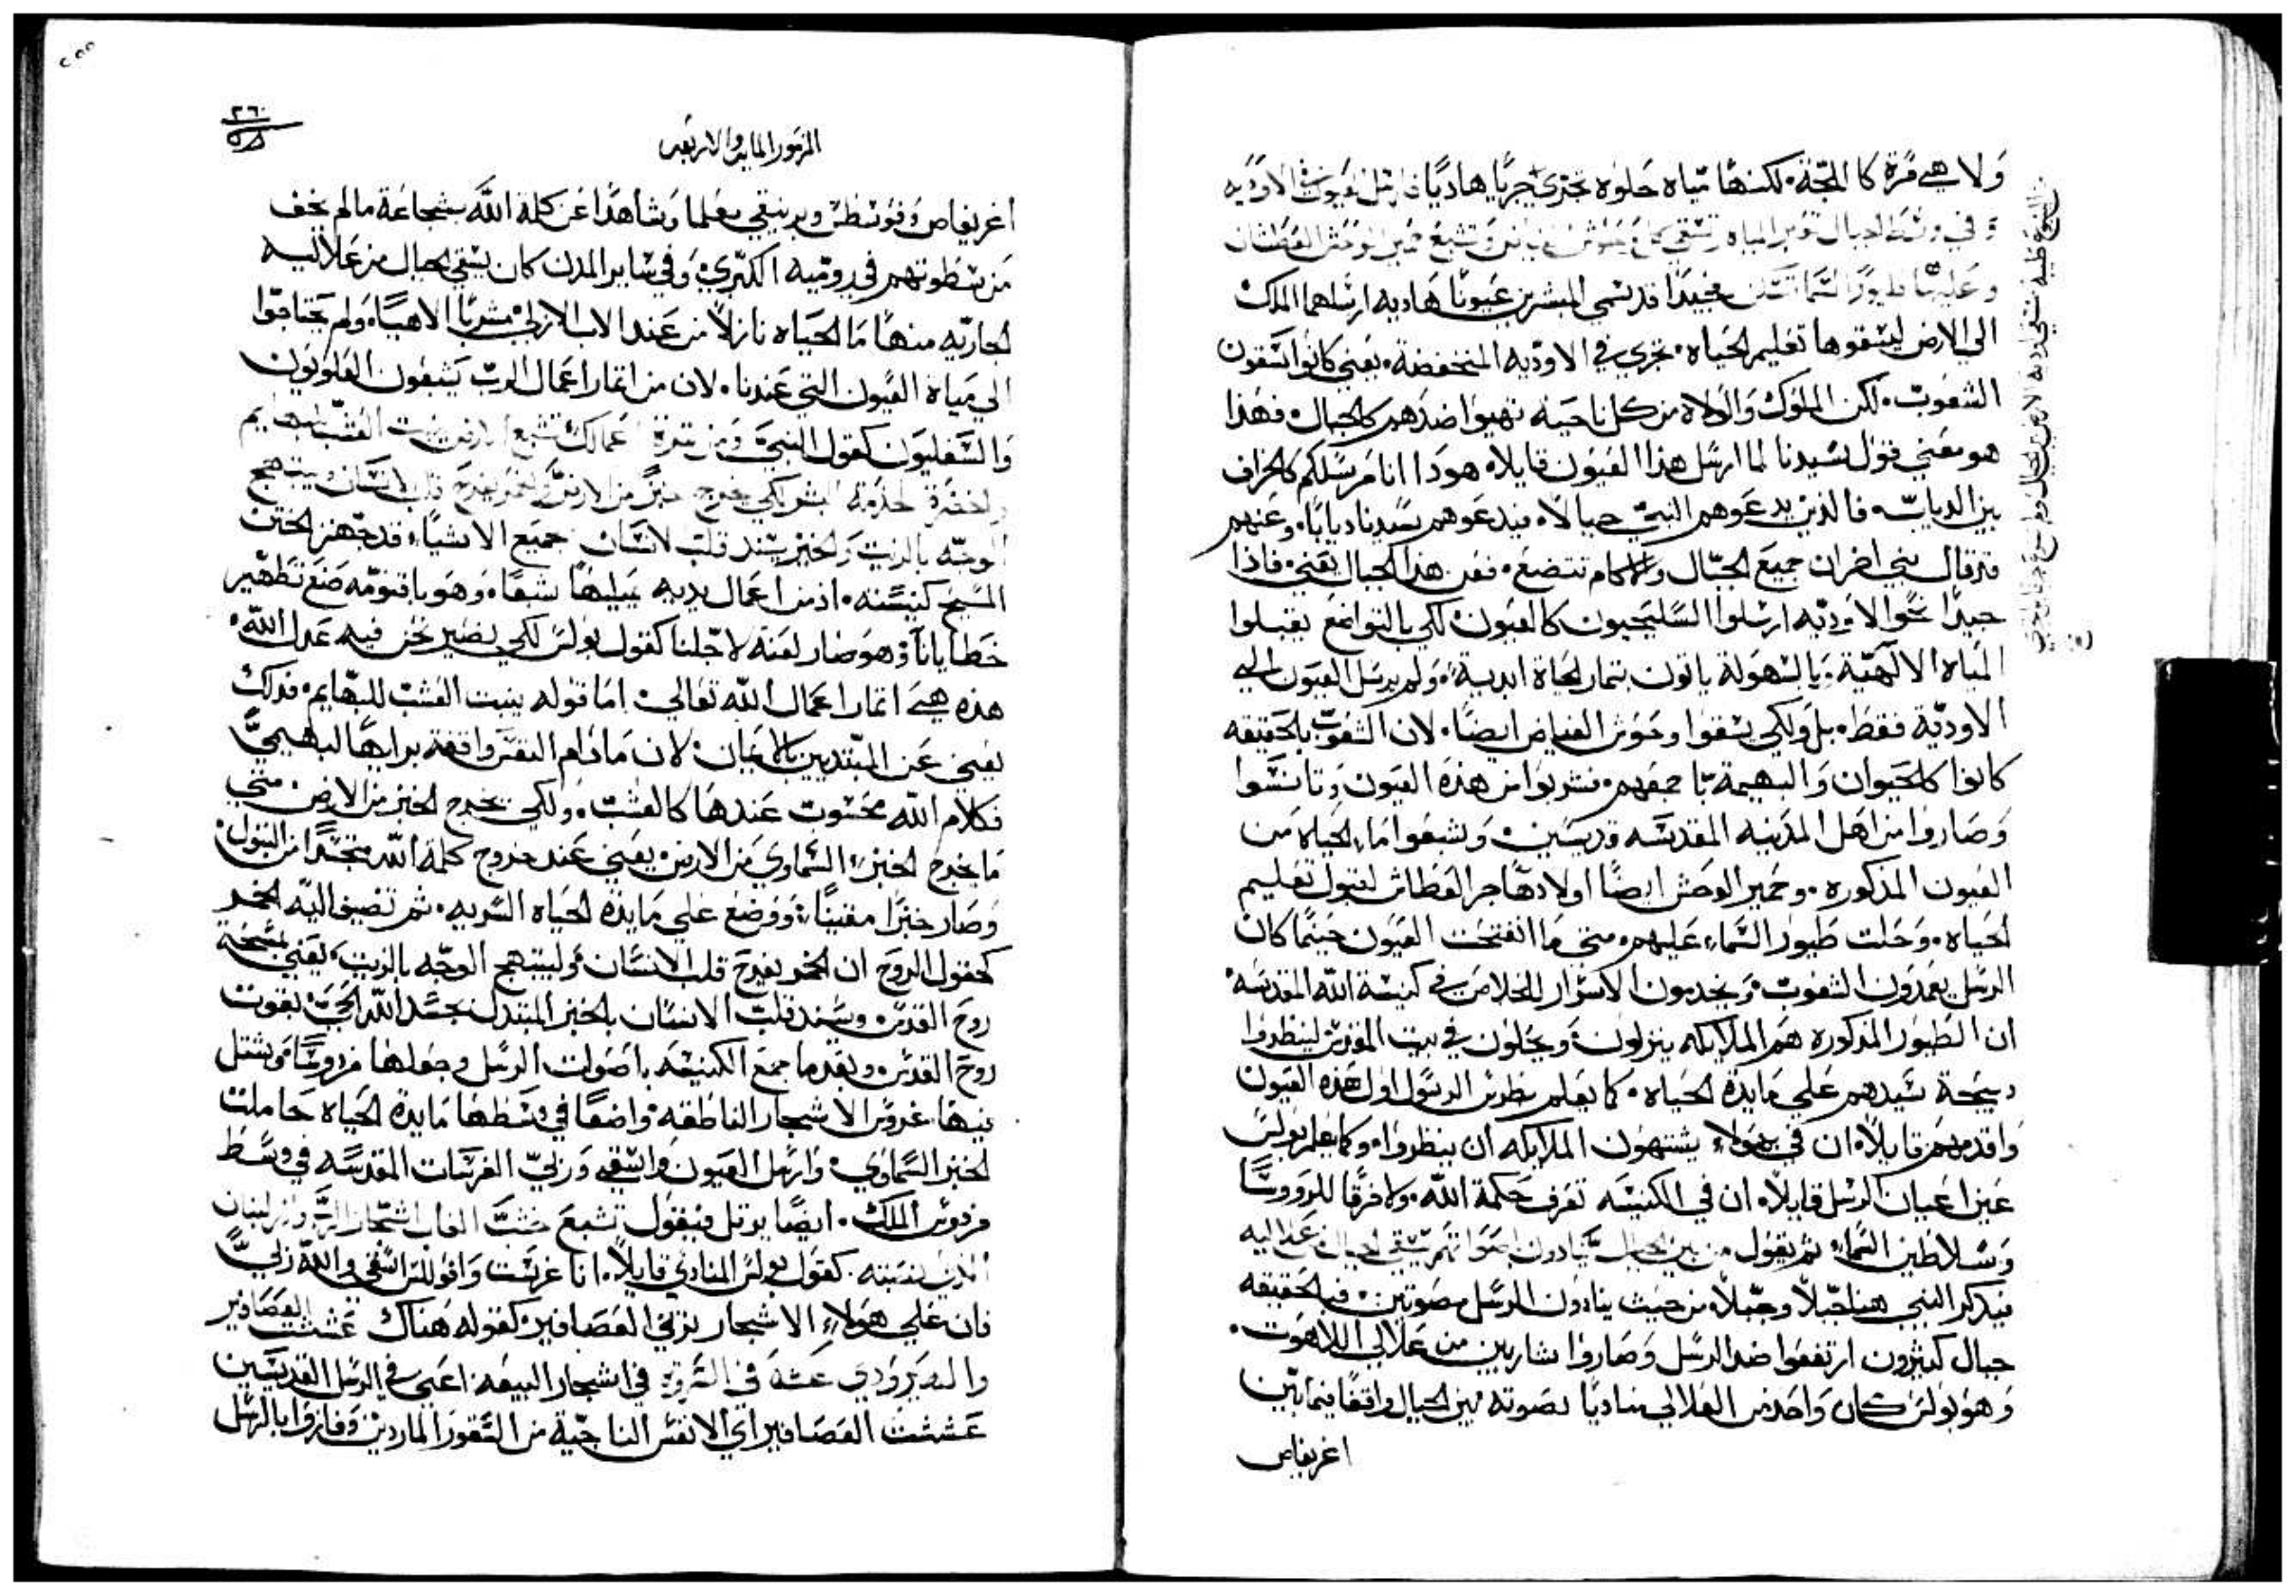 ولا هي مرة كالمجة. لكنها مياه حلوه تجري جريا هاديا ارسل العيون في الاوديه
وفي وسط الجبال تعبر المياه وتشبع حمير الوحش العطشان
وعليها طيور السما تسكن فجيدا قد تسمي المبشرين عيونا هاديه ارسلها الملك
الي الارض ليسقوها تعليم الحياه. تجري في الاوديه المنخفضة. يعني كانوا يسقون
الشعوب. لكن الملوك والولاه من كل ناحيه تهيوا ضدهم كالجبال. فهذا
هو معني قول سيدنا لما ارسل هذا العيون قايلا. هودا انا مرسلكم كالخراف
بين الدياب. فالذين يدعوهم النبي جبالا. فيدعوهم سيدنا ديابا. وعنهم
قد قال نبي اخر ان جميع الجبال والاكام تتضع. فعن هذا الجبال يعني. فاذا
جيدا نحو الاوديه ارسلوا السليحيون كالعيون لكي بالتواضع يقبلوا
المياه الالهية وبالسهولة ياتون بثمار الحياة ابدية. ولم يرسل العيون الي
الاودية فقط. بل ولكي يسقوا وحوش الغياض ايضا. لان الشعوب بالحقيقه
كانوا كالحيوان والبهيمة باجمعهم. فشربوا من هذه العيون وتانسوا
وصاروا من اهل المدينه المقدسه قديسين. وشبعوا ماء الحياه من
العيون المذكوره. وحمير الوحش ايضا اولاد هاجر العطاش لقبول تعليم
الحياه. وحلت طيور السماء عليهم. متي ما انفتحت العيون حينما كان
الرسل يعمدون الشعوب. ويخدمون الاسرار للخلاص في كنيسة الله المقدسه.
ان الطيور المذكوره هم الملايكه ينزلون. ويحلون في بيت المقدس لينظروا
دبيحة سيدهم علي مايدة الحياه. كما يعلم بطرس الرسول اول هذه العيون
واقدمهم قايلا. ان في هولاء يشتهون الملايكه ان ينظروا. وكما يعلم بولس
عين اعيان الرسل قايلا. ان في الكنيسه تعرف حكمة الله. ولا فرقا للرووسا
وسلاطين السماء. ثم يقول من بين الجبال ينادون اصواتهم يسقي الجبال من علاليه
فيدكر النبي هنا جبلا وجبلا. من حيث ينادون الرسل بصوتين. فبالحقيقه
جبال كثيرون ارتفعوا ضد الرسل وصاروا شاربين من علالي اللاهوت.
وهو بولس كان واحد من العلالي مناديا بصوته بين الجبال واقفا فيما بين
اغريفاص
المزمور المايه والاربعه
٢٦٠
اغريفاص وفوسطس وبرنيقي معلما وشاهدا عن كلمة الله بشجاعة ما لم يخف
من سطوتهم في روميه الكبري. وفي ساير المدن كان يسقي الجبال من علاليه
الجاريه منها ما الحياه نازلا من عند الاب الازلي. مشربا الاهيا. ولم يحتاجوا
الي مياه العيون التي عندنا. لان من اثمار اعمال الرب يشبعون العلويون
والسفليون كقول النبي ومن ثمرة اعمالك تشبع الارض ينبت العشب للبهايم
والخضرة لخدمة البشر لكي يخرج خبز من الارض والخمر يفرح قلب الانسان ويبتهج
الوجه بالزيت والخبز يسند قلب الانسان جميع الاشياء. قد جهز الختن
المسيح كنيسته. اذ من اعمال يديه يمليها شبعا. وهو باقنومه صنع تطهير
خطايانا. وهو صار لعنة لاجلنا كقول بولس لكي نصير نحن فيه عدل الله.
هذه هي اثمار اعمال الله تعالي. اما قوله ينبت العشب للبهايم. فدلك
يعني عن المبتدين بالايمان. لان ما دام النفس واقفة برايها البهيمي
فكلام الله محسوب عندها كالعشب. ولكي يخرج الخبز من الارض. متي
ما يخرج الخبز السماوي من الارض يعني عند خروج كلمة الله متجسدا من البتول.
وصار خبزا مقيتا. ووضع علي مايدة الحياه السريه. ثم تضيف اليه الخمر
كقول الروح ان الخمر يفرح قلب الانسان. وليبتهج الوجه بالزيت. يعني بمسحة
روح القدس. ويسند قلب الانسان بالخبز المتبدل بجسد الله الحي. بقوت
روح القدس. وبعد ما جمع الكنيسه باصوات الرسل وجعلها فردوسا. وشتل
فيها غروس الاشجار الناطقه. واضعا في وسطها مايدة الحياه حاملت
الخبز السماوي. وارسل العيون واسقي وربي الغرسات المقدسه في وسط
فردوس الملك. ايضا يرتل فيقول تشبع خشب الغاب اشجار الرب وارز لبنان
الذي نصبته. كقول بولس المنادي قايلا. انا غرست وافوللس اسقي والله ربي
فان علي هولاء الاشجار يربي العصافير. كقوله هناك تعشش العصافير
والهيرودي عشه في السرو في اشجار البيعه. اعني في الرسل القديسين
عششت العصافير اي الانفس الناجية من النسور الماردين. وفازوا بالرسل